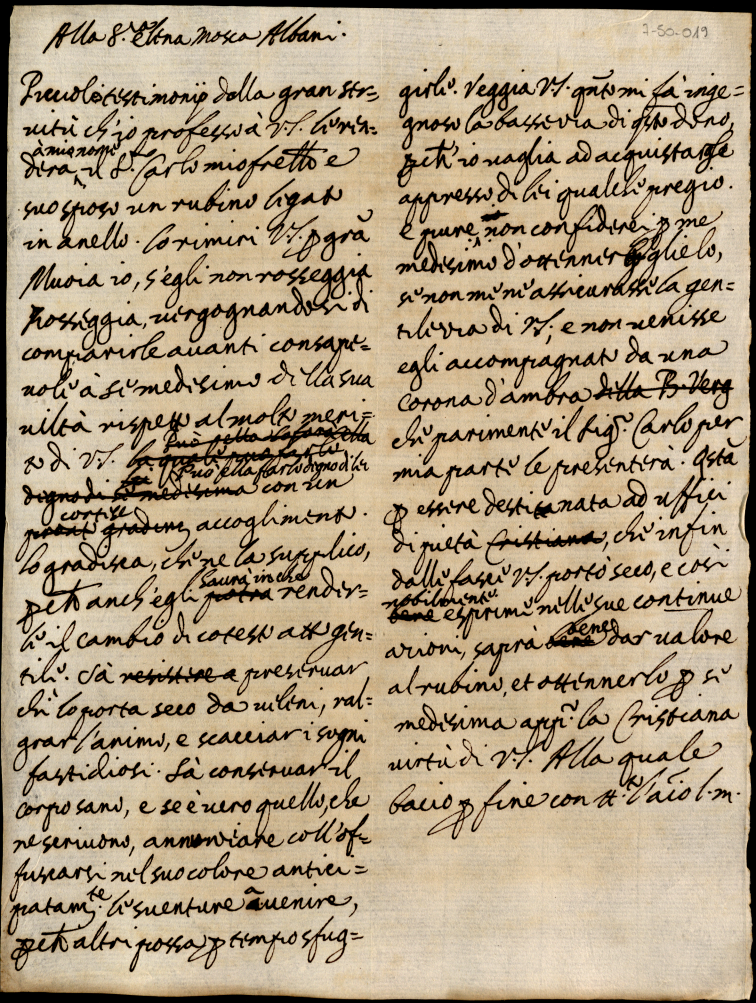 Alla S.ra Elena Mosca Albani.
7-50-019
Piccolo testimonio della gran ser=
vitù ch'io professo à V.S. le ren=
derà à mio nome il S.r Carlo mio fretto e
suo sposo un rubino ligato
in anello. Lo rimiri V.S. p grã
Muoia io, s'egli non rosseggia
Rosseggia, vergognandosi di
comparirle avanti consape=
vole à se medesimo della sua
viltà rispetto al molto meri=
to di V.S. Può ella farlo digno di lei
digno di se medesima con un
cortese accoglimento.
Lo gradisca, che ne la supplico,
pch anch'egli saurà in che render=
le il cambio di cotesto atto gen=
tile. Sà resistere a preservar
chi lo porta seco da veleni, ral=
grar l'animo, e scacciar i sogni
fastidiosi. Sà conservar il
corpo sano, e se è vero quello, che
ne scrivono, annonciare coll'of=
fuscarsi nel suo colore antici=
patam.te le sventure à venire,
pch altri possa p tempo sfug=
girle. Veggia V.S. qũto mi fà inge=
gnoso la bassezza di qsto dono,
pch'io vaglia ad acquistarle
appresso di lei qualche pregio.
e pure non confiderei p me
medesimo d'ottenerglielo,
se non me ne assicurasse la gen=
tilezza di V.S., e non venisse
egli accompagnato da una
corona d'ambra della B. Verg
che parimente il Sig.r Carlo per
mia parte le presenterà. Qstà
p essere destinata ad uffici
di pietà Cristiana, che infin
dalle fasce V.S. portò seco, e così
nobilmente
bene esprime nelle sue continue
azioni, saprà bene dar valore
al rubino, et ottennerlo p se
medesima app.o la Cristiana
virtù di V.S. Alla quale
bacio p fine con tt.o l'aĩo l. m.